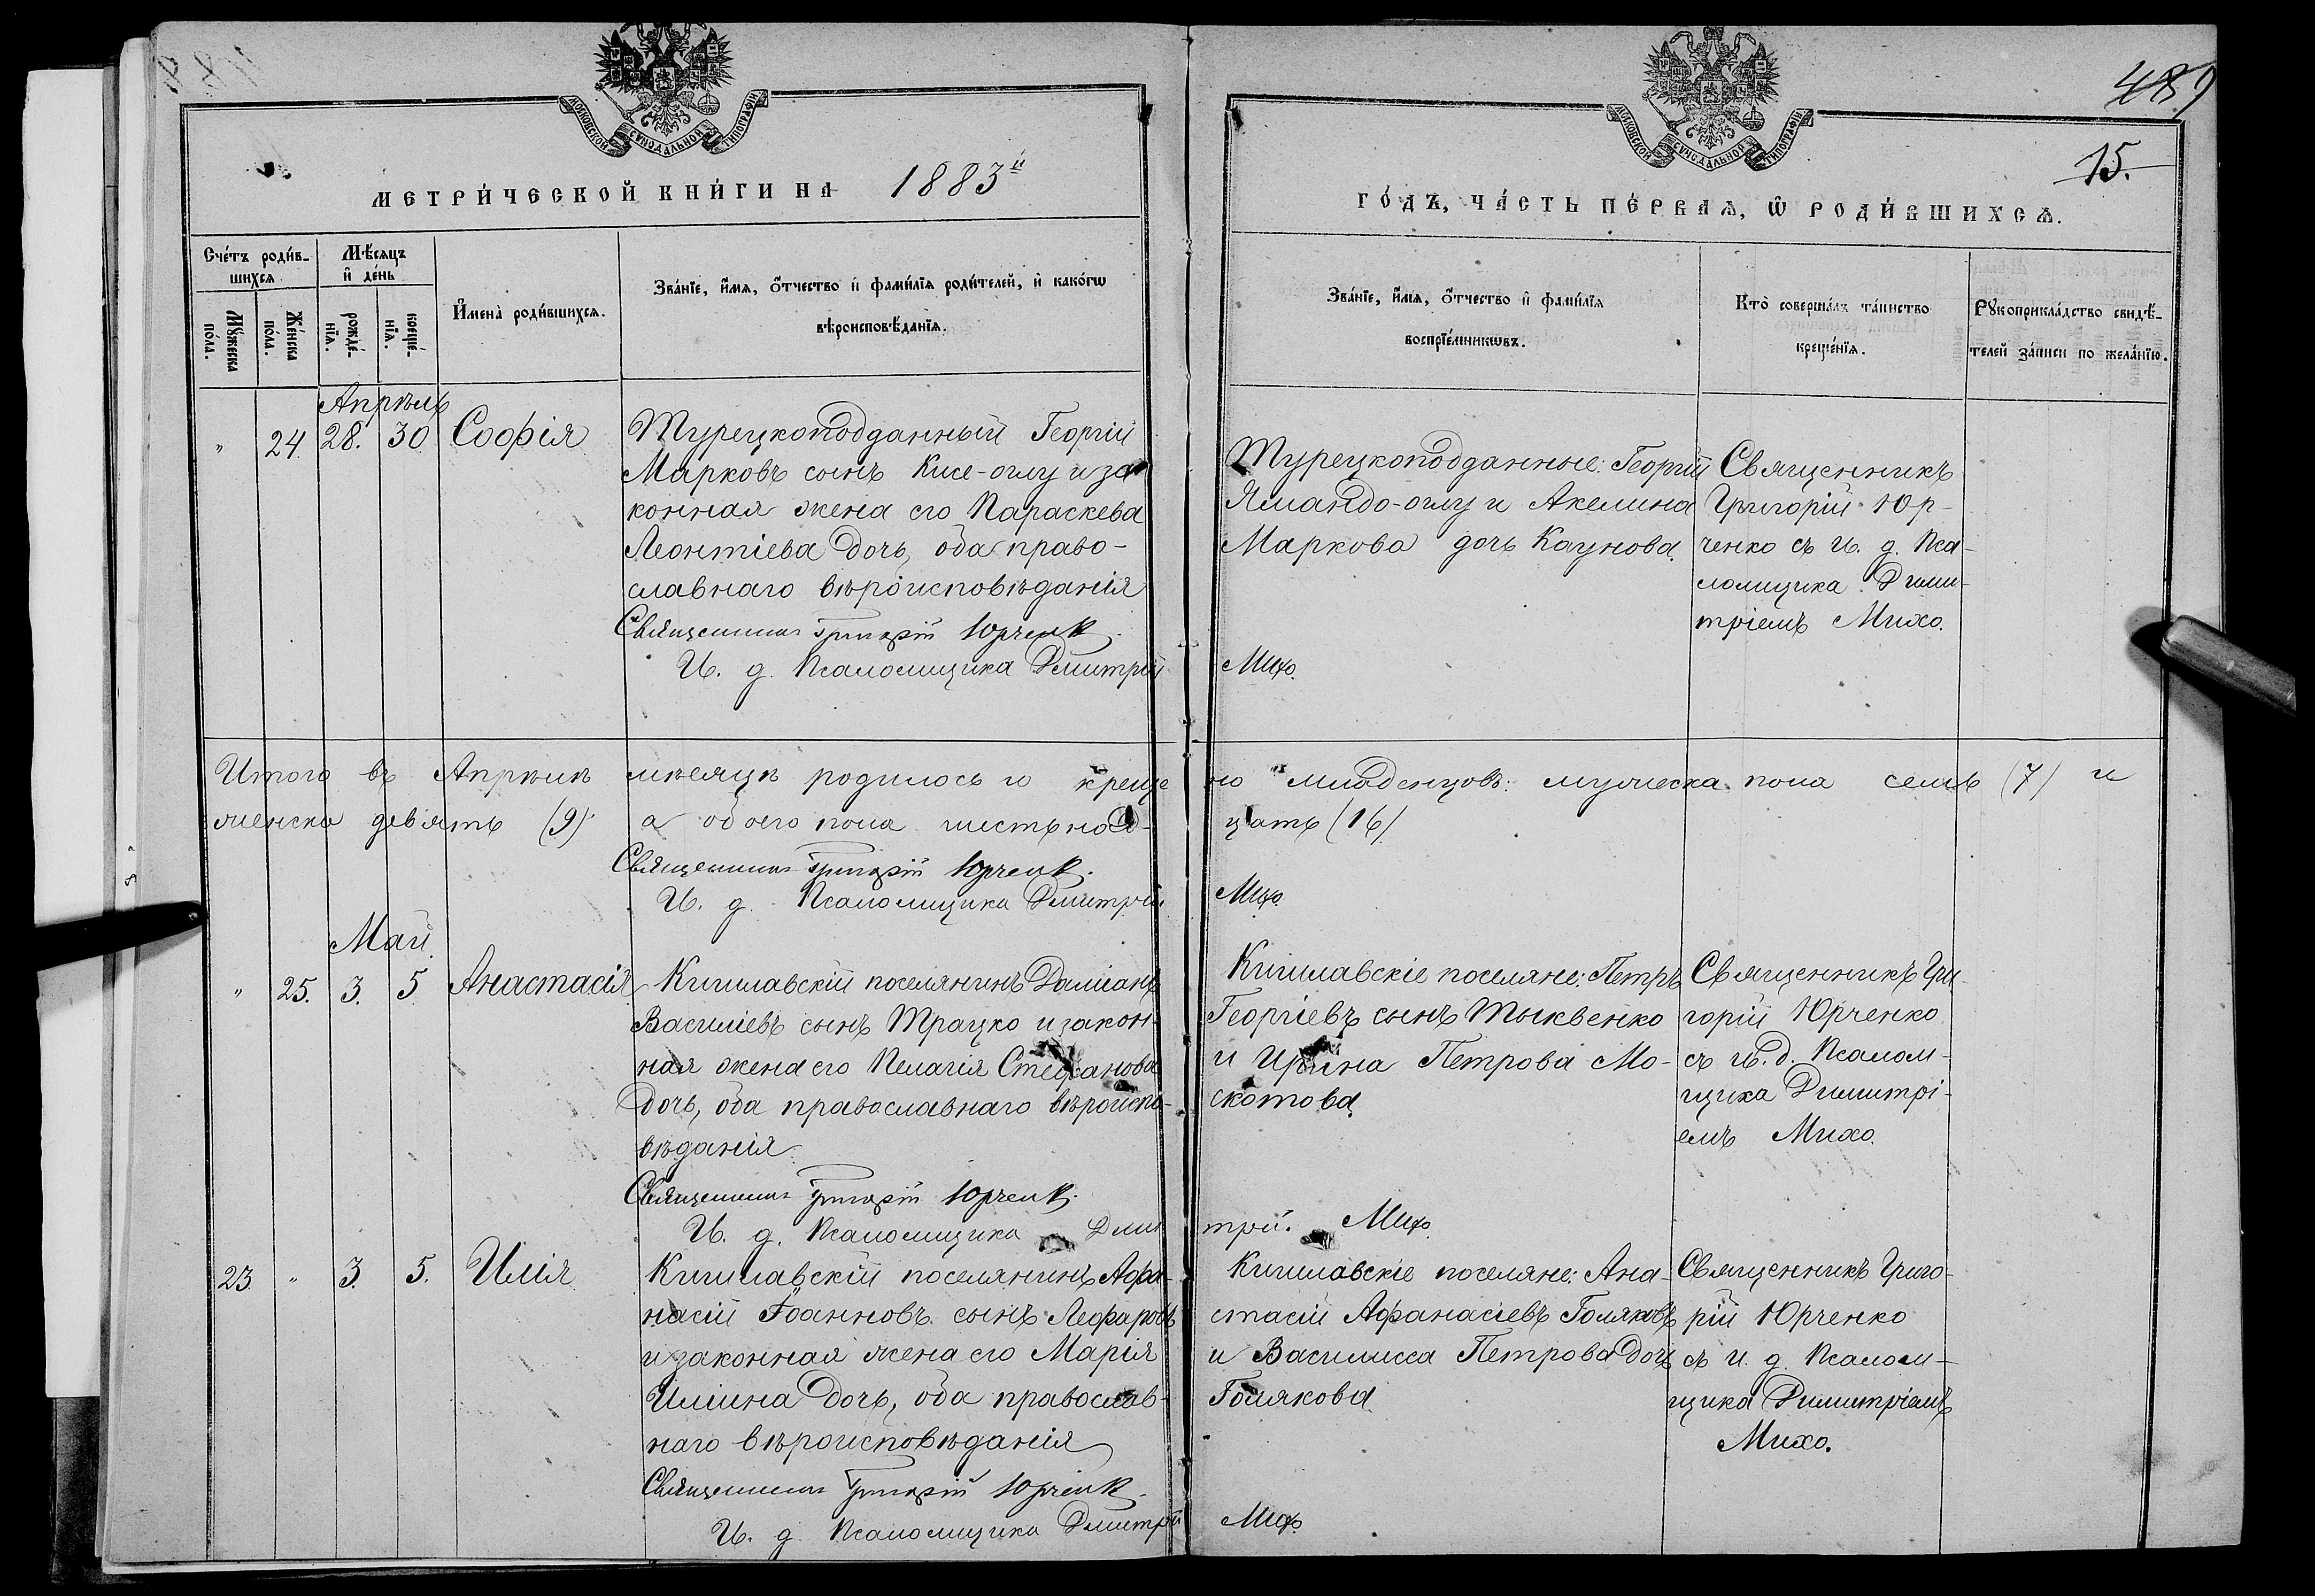 489
МОСКОВСКОЙ СѴНОДАЛЬНОЙ ТИПОГРАФІИ
МОСКОВСКОЙ СѴНОДАЛЬНОЙ ТИПОГРАФІИ
15.
МЕТРИ́ЧЕСКОЙ КНИ́ГИ НА 1883й
ГО́ДЪ, ЧА́СТЬ ПЕ́РВАѦ, Ѡ҆ РОДИ́ВШИХСѦ.
Сче́тъ роди́в-
шихся
Мѣ́сяцъ
и҆ де́нь
Мꙋ́жеска
по́ла.
Же́нска
по́ла.
рожде́-
нїя.
креще́-
нїя.
И҆мена̀ роди́вшихся.
Зва́нїе, и҆́мя, ѻ҆́тчество и҆ фами́лїя роди́телей, и҆ како́гѡ
вѣроисповѣ́данїя.
Зва́нїе, и҆́мя, ѻ҆́тчество и҆ фами́лїя
воспрїе́мникѡвъ.
Кто̀ соверша́лъ та́инство
креще́нїя.
Рꙋкоприкла́дство свидѣ́-
телей за́писи по жела́нїю.
Апрѣль
" 24. 28. 30 Софія
Турецкоподданный Георгій
Марковъ сынъ Кисе-оглу и за
конная жена его Параскева
Леонтіева дочь, оба право-
славнаго вѣроисповѣданія
Турецкоподданные: Георгій
Ямандо-оглу и Акелина
Маркова дочь Каунова.
Священникъ
Григорій Юр-
ченко съ и. д. Пса-
ломщика Дими-
тріемъ Михо.
Священникъ Григорій Юрченко.
И. д. Псаломщика Дмитрій Михо.
Итого въ Апрѣлѣ мѣсяцѣ родилось и креще но младенцовъ: мужеска пола семь (7) и
женска девять (9) а обоего пола шестьнад- цать (16)
Священникъ Григорій Юрченко.
И. д. Псаломщика Дмитрій Михо.
Май.
" 25. 3. 5 Анастасія
Кишлавскій поселянинъ Даміанъ
Василіевъ сынъ Трацко и закон-
ная жена его Пелагія Стефанова
дочь, оба православнаго вѣроиспо-
вѣданія
Кишлавскіе поселяне: Петръ
Георгіевъ сынъ Тыквенко
и Ирина Петрова Мо-
скотова.
Священникъ Гри-
горій Юрченко
съ и. д. Псалом-
щика Димитрі-
емъ Михо.
Священникъ Григорій Юрченко.
И. д. Псаломщика Дми трій. Михо.
23. " 3. 5. Илія
Кишлавскій поселянинъ Афа-
насій Іоанновъ сынъ Лефаровъ
и законная жена его Марія
Иліина дочь, оба православ-
наго вѣроисповѣданія
Кишлавскіе поселяне: Ана-
стасій Афанасіевъ Голяковъ
и Василисса Петрова дочь
Голякова.
Священникъ Григо-
рій Юрченко
съ и. д. Псалом-
щика Димитріемъ
Михо.
Священникъ Григорій Юрченко.
И. д. Псаломщика Дмитрій Михо.